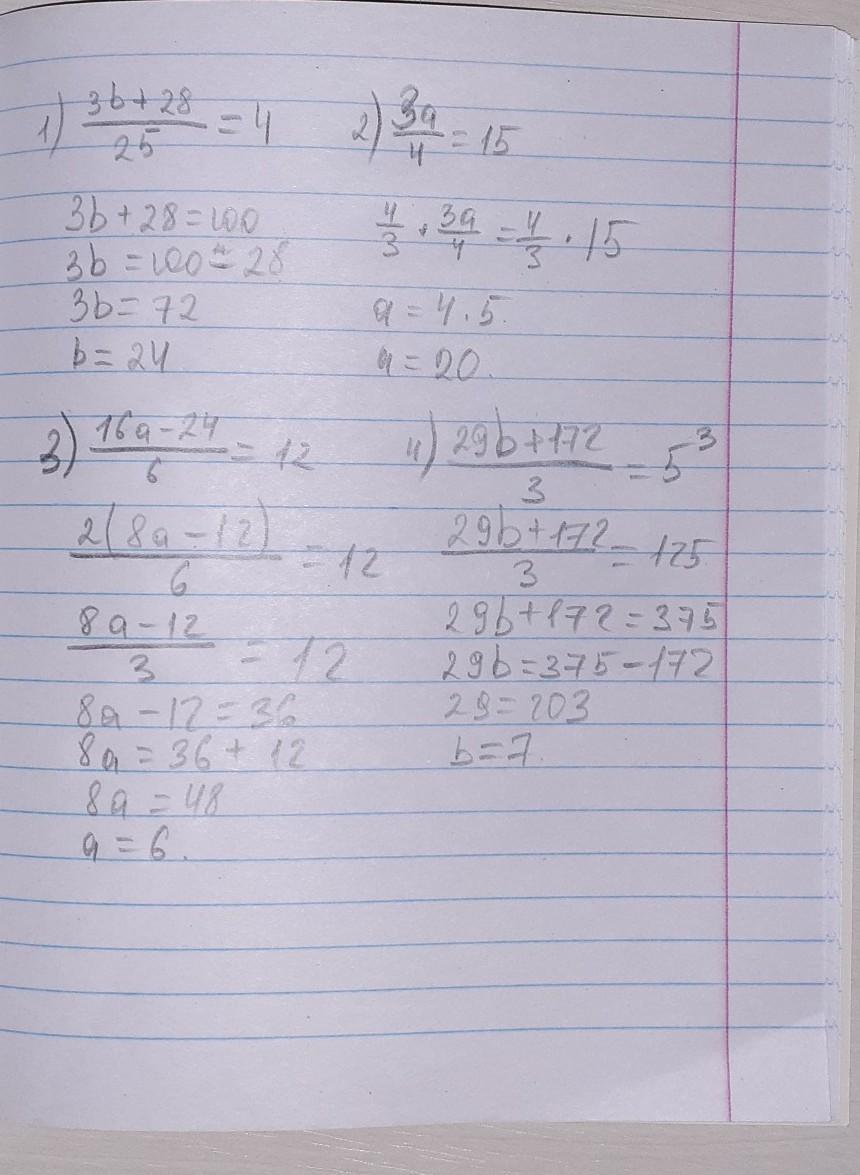 1) (3b + 28)/25 = 4
3b + 28 = 100
3b = 100 - 28
3b = 72
b = 24
2) 3a/4 = 15
4/3 · 3a/4 = 4/3 · 15
a = 4 · 5
a = 20.
3) (16a - 24)/6 = 12
2(8a - 12)/6 = 12
(8a - 12)/3 = 12
8a - 12 = 36
8a = 36 + 12
8a = 48
a = 6.
4) (29b + 172)/3 = 5³
(29b + 172)/3 = 125
29b + 172 = 375
29b = 375 - 172
29 = 203
b = 7.